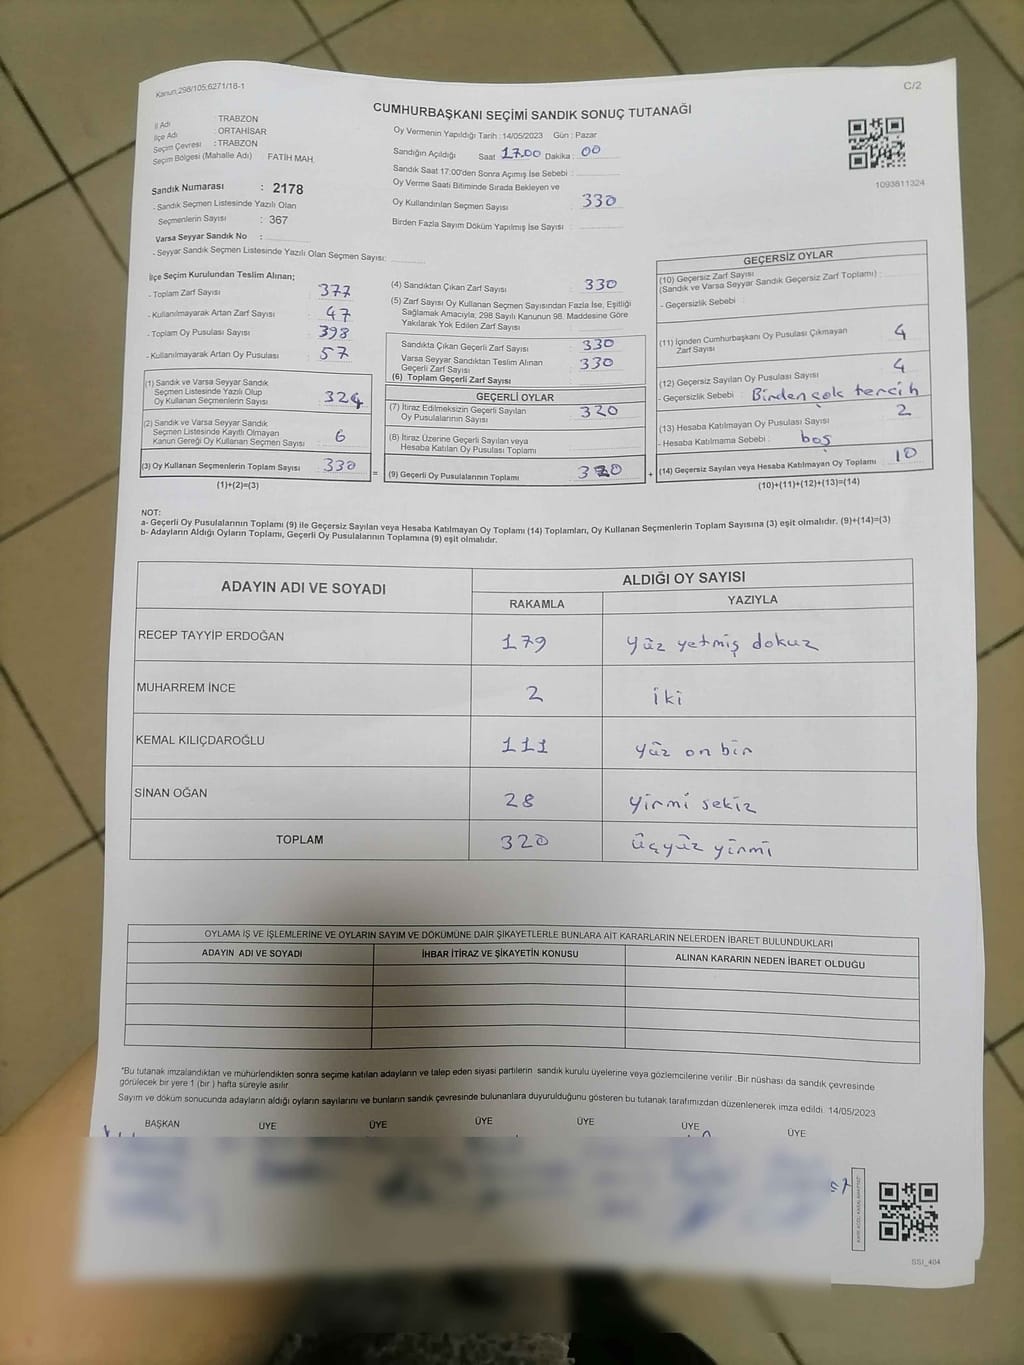 Kanun;298/105;6271/18-1
C/2
CUMHURBAŞKANI SEÇİMİ SANDIK SONUÇ TUTANAĞI
İl Adı : TRABZON
İlçe Adı : ORTAHİSAR
Seçim Çevresi : TRABZON
Seçim Bölgesi (Mahalle Adı) FATİH MAH.
Sandık Numarası : 2178
- Sandık Seçmen Listesinde Yazılı Olan
Seçmenlerin Sayısı : 367
Varsa Seyyar Sandık No :
- Seyyar Sandık Seçmen Listesinde Yazılı Olan Seçmen Sayısı:
Oy Vermenin Yapıldığı Tarih : 14/05/2023 Gün : Pazar
Sandığın Açıldığı Saat 17.00 Dakika : 00
Sandık Saat 17:00'den Sonra Açımış İse Sebebi :
Oy Verme Saati Bitiminde Sırada Bekleyen ve
Oy Kullandırılan Seçmen Sayısı : 330
Birden Fazla Sayım Döküm Yapılmış İse Sayısı :
1093811324
İlçe Seçim Kurulundan Teslim Alınan;
- Toplam Zarf Sayısı : 377
- Kullanılmayarak Artan Zarf Sayısı : 47
- Toplam Oy Pusulası Sayısı : 398
- Kullanılmayarak Artan Oy Pusulası : 57
(1) Sandık ve Varsa Seyyar Sandık
Seçmen Listesinde Yazılı Olup
Oy Kullanan Seçmenlerin Sayısı : 324
(2) Sandık ve Varsa Seyyar Sandık
Seçmen Listesinde Kayıtlı Olmayan
Kanun Gereği Oy Kullanan Seçmen Sayısı : 6
(3) Oy Kullanan Seçmenlerin Toplam Sayısı : 330
(1)+(2)=(3)
=
(4) Sandıktan Çıkan Zarf Sayısı : 330
(5) Zarf Sayısı Oy Kullanan Seçmen Sayısından Fazla İse, Eşitliği
Sağlamak Amacıyla; 298 Sayılı Kanunun 98. Maddesine Göre
Yakılarak Yok Edilen Zarf Sayısı :
Sandıkta Çıkan Geçerli Zarf Sayısı : 330
Varsa Seyyar Sandıktan Teslim Alınan
Geçerli Zarf Sayısı : 330
(6) Toplam Geçerli Zarf Sayısı :
GEÇERLİ OYLAR
(7) İtiraz Edilmeksizin Geçerli Sayılan
Oy Pusulalarının Sayısı : 320
(8) İtiraz Üzerine Geçerli Sayılan veya
Hesaba Katılan Oy Pusulası Toplamı :
(9) Geçerli Oy Pusulalarının Toplamı : 320
+
GEÇERSİZ OYLAR
(10) Geçersiz Zarf Sayısı
(Sandık ve Varsa Seyyar Sandık Geçersiz Zarf Toplamı) :
- Geçersizlik Sebebi :
(11) İçinden Cumhurbaşkanı Oy Pusulası Çıkmayan
Zarf Sayısı : 4
(12) Geçersiz Sayılan Oy Pusulası Sayısı : 4
- Geçersizlik Sebebi : Birden çok tercih
(13) Hesaba Katılmayan Oy Pusulası Sayısı : 2
- Hesaba Katılmama Sebebi : boş
(14) Geçersiz Sayılan veya Hesaba Katılmayan Oy Toplamı : 10
(10)+(11)+(12)+(13)=(14)
NOT:
a- Geçerli Oy Pusulalarının Toplamı (9) ile Geçersiz Sayılan veya Hesaba Katılmayan Oy Toplamı (14) Toplamları, Oy Kullanan Seçmenlerin Toplam Sayısına (3) eşit olmalıdır. (9)+(14)=(3)
b- Adayların Aldığı Oyların Toplamı, Geçerli Oy Pusulalarının Toplamına (9) eşit olmalıdır.
ADAYIN ADI VE SOYADI
ALDIĞI OY SAYISI
RAKAMLA YAZIYLA
RECEP TAYYİP ERDOĞAN 179 yüz yetmiş dokuz
MUHARREM İNCE 2 iki
KEMAL KILIÇDAROĞLU 111 yüz on bir
SİNAN OĞAN 28 yirmi sekiz
TOPLAM 320 üçyüz yirmi
OYLAMA İŞ VE İŞLEMLERİNE VE OYLARIN SAYIM VE DÖKÜMÜNE DAİR ŞİKAYETLERLE BUNLARA AİT KARARLARIN NELERDEN İBARET BULUNDUKLARI
ADAYIN ADI VE SOYADI İHBAR İTİRAZ VE ŞİKAYETİN KONUSU ALINAN KARARIN NEDEN İBARET OLDUĞU
*Bu tutanak imzalandıktan ve mühürlendikten sonra seçime katılan adayların ve talep eden siyasi partilerin sandık kurulu üyelerine veya gözlemcilerine verilir .Bir nüshası da sandık çevresinde
görülecek bir yere 1 (bir ) hafta süreyle asılır
Sayım ve döküm sonucunda adayların aldığı oyların sayılarını ve bunların sandık çevresinde bulunanlara duyurulduğunu gösteren bu tutanak tarafımızdan düzenlenerek imza edildi. 14/05/2023
BAŞKAN ÜYE ÜYE ÜYE ÜYE ÜYE ÜYE
SSI_404